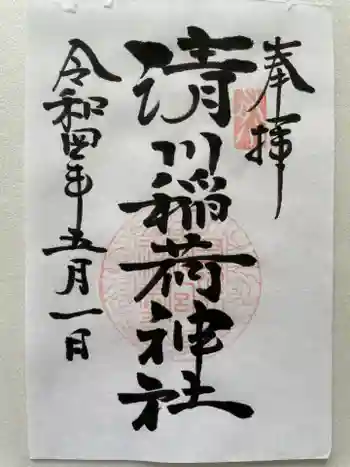 奉拝
清川稲荷神社
令和四年五月一日